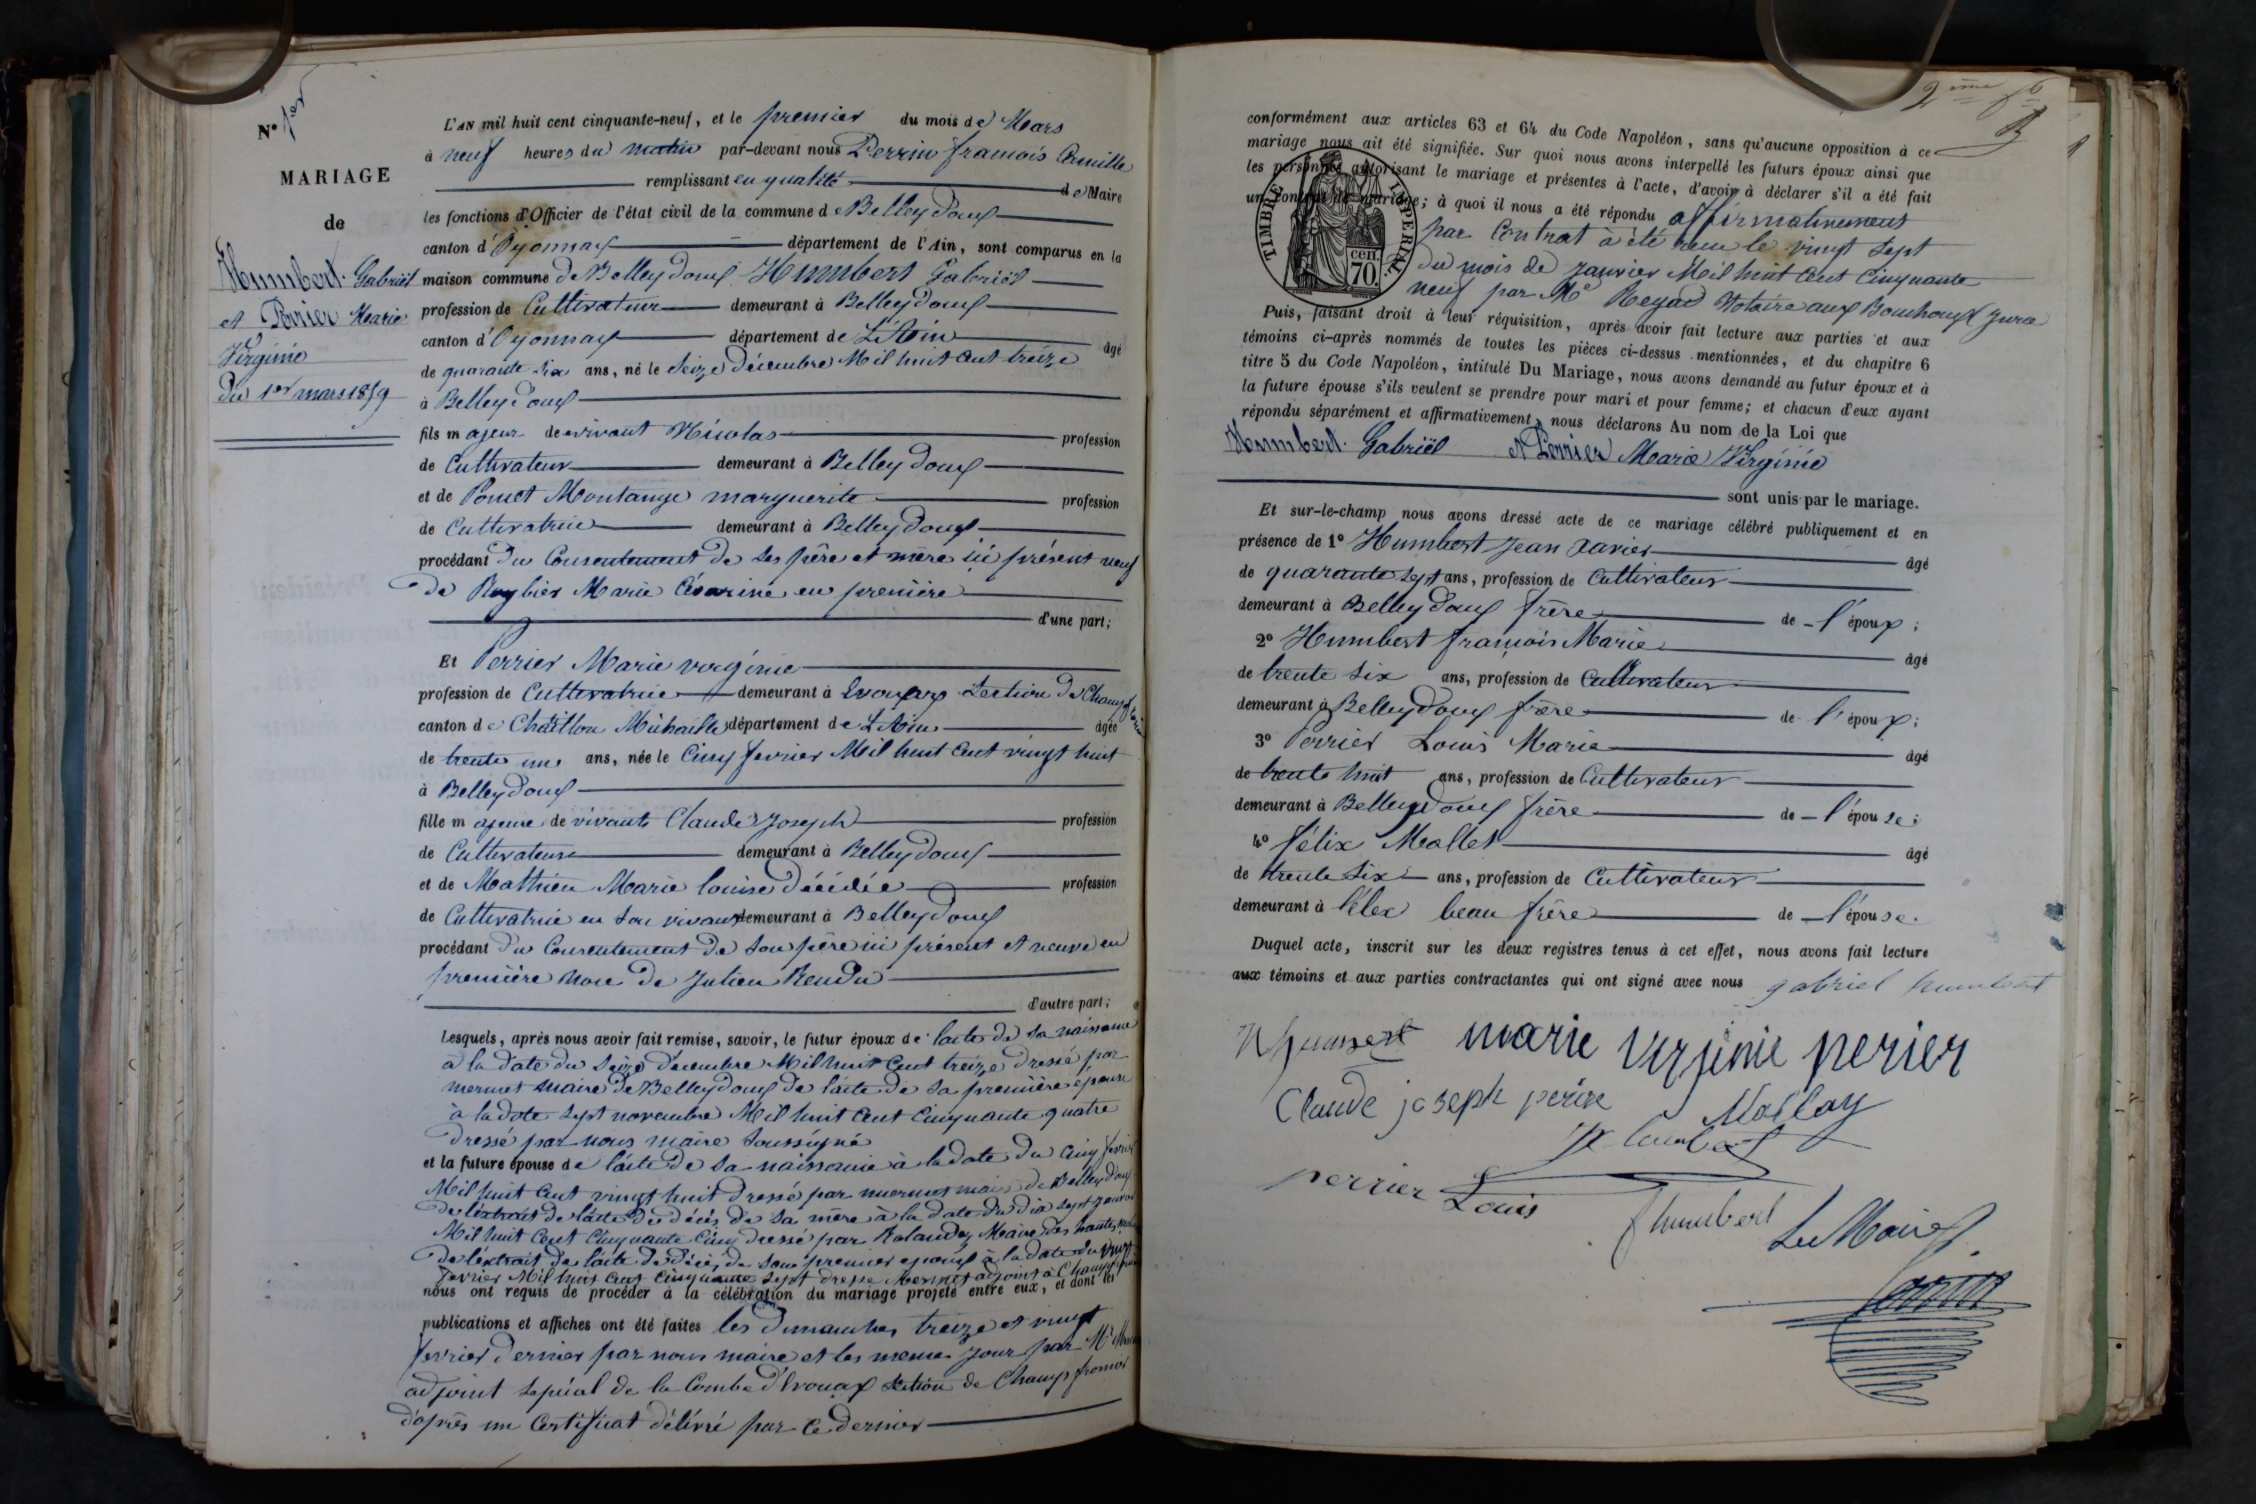 N° 1er
MARIAGE
de
Humbert Gabriël
et Perrier Marie
Virginie
Du 1er mars 1859
L'AN mil huit cent cinquante-neuf, et le premier du mois de Mars
à neuf heures du matin par-devant nous Perrin françois Camille
remplissant en qualité de Maire
les fonctions d'Officier de l'état civil de la commune de Belleydoux
canton d'Oyonnax département de l'Ain, sont comparus en la
maison commune de Belleydoux Humbert Gabriël
profession de Cultivateur demeurant à Belleydoux
canton d'Oyonnax département de L'Ain âgé
de quarante six ans, né le Seize décembre Mil huit Cent treize
à Belleydoux
fils majeur de vivant Nicolas profession
de Cultivateur demeurant à Belleydoux
et de Poncet Montange marguerite profession
de Cultivatrice demeurant à Belleydoux
procédant du Consentement de ses père et mère ici présent veuf
de Marie Césarine en première
d'une part;
Et Perrier Marie virginie
profession de Cultivatrice demeurant à Section de Champfromier
canton de Chatillon Michaille département de L'Ain âgée
de trente une ans, née le Cinq fevrier Mil huit Cent vingt huit
à Belleydoux
fille majeure de vivant Claude Joseph profession
de Cultivateur demeurant à Belleydoux
et de Mathieu Marie louise Décédée profession
de Cultivatrice en son vivant demeurant à Belleydoux
procédant du Consentement de son père ici présent et veuve en
première noce de Julien Rendu
d'autre part;
Lesquels, après nous avoir fait remise, savoir, le futur époux de l'acte de sa naissance
à la date du Seize décembre Mil huit Cent treize dressé par
mermet maire de Belleydoux de l'acte de sa première épouse
à la date sept novembre Mil huit Cent Cinquante quatre
dressé par nous maire Soussigné
et la future épouse de l'acte de sa naissance à la date du Cinq fevrier
Mil huit Cent vingt huit dressé par mermet maire de Belleydoux
de l'extrait de l'acte de décès de sa mère à la date du dix sept janvier
Mil huit Cent Cinquante Cinq dressé par Maire des hautes
de l'extrait de l'acte de décès de son premier epoux à la date du vingt
fevrier Mil huit Cent Cinquante sept dresse Mermet adjoint à Champfromier
nous ont requis de procéder à la célébration du mariage projeté entre eux, et dont les
publications et affiches ont été faites les Dimanches treize et vingt
fevrier dernier par nous maire et les meme jour par Mr
adjoint Spécial de la Combe d'Evouax Section de Champfromier
d'après un Certificat délivré par Ce dernier
2ème
conformément aux articles 63 et 64 du Code Napoléon, sans qu'aucune opposition à ce
mariage nous ait été signifiée. Sur quoi nous avons interpellé les futurs époux ainsi que
les personnes autorisant le mariage et présentes à l'acte, d'avoir à déclarer s'il a été fait
un contrat de mariage; à quoi il nous a été répondu affirmativement
TIMBRE IMPERIAL
cen. 70.
par Contrat à été recu le vingt Sept
du mois de Janvier Mil huit Cent Cinquante
neuf par Me Reygad Notaire aux Bouchoux Jura
Puis, faisant droit à leur réquisition, après avoir fait lecture aux parties et aux
témoins ci-après nommés de toutes les pièces ci-dessus mentionnées, et du chapitre 6
titre 5 du Code Napoléon, intitulé Du Mariage, nous avons demandé au futur époux et à
la future épouse s'ils veulent se prendre pour mari et pour femme; et chacun d'eux ayant
répondu séparément et affirmativement, nous déclarons Au nom de la Loi que
Humbert Gabriël et Perrier Marie Virginie
sont unis par le mariage.
Et sur-le-champ nous avons dressé acte de ce mariage célébré publiquement et en
présence de 1° Humbert Jean Xavier
âgé
de quarante sept ans, profession de Cultivateur
demeurant à Belleydoux frère de l'époux;
2° Humbert françois Marie
âgé
de trente six ans, profession de Cultivateur
demeurant à Belleydoux frère de l'époux;
3° Perrier Louis Marie
âgé
de trente huit ans, profession de Cultivateur
demeurant à Belleydoux frère de l'épouse;
4° félix Mallet
âgé
de trente Six ans, profession de Cultivateur
demeurant à lélex beau frère de l'épouse.
Duquel acte, inscrit sur les deux registres tenus à cet effet, nous avons fait lecture
aux témoins et aux parties contractantes qui ont signé avec nous gabriel humbert
marie virjinie perier
Claude joseph
perrier Louis
f humbert
Le Maire